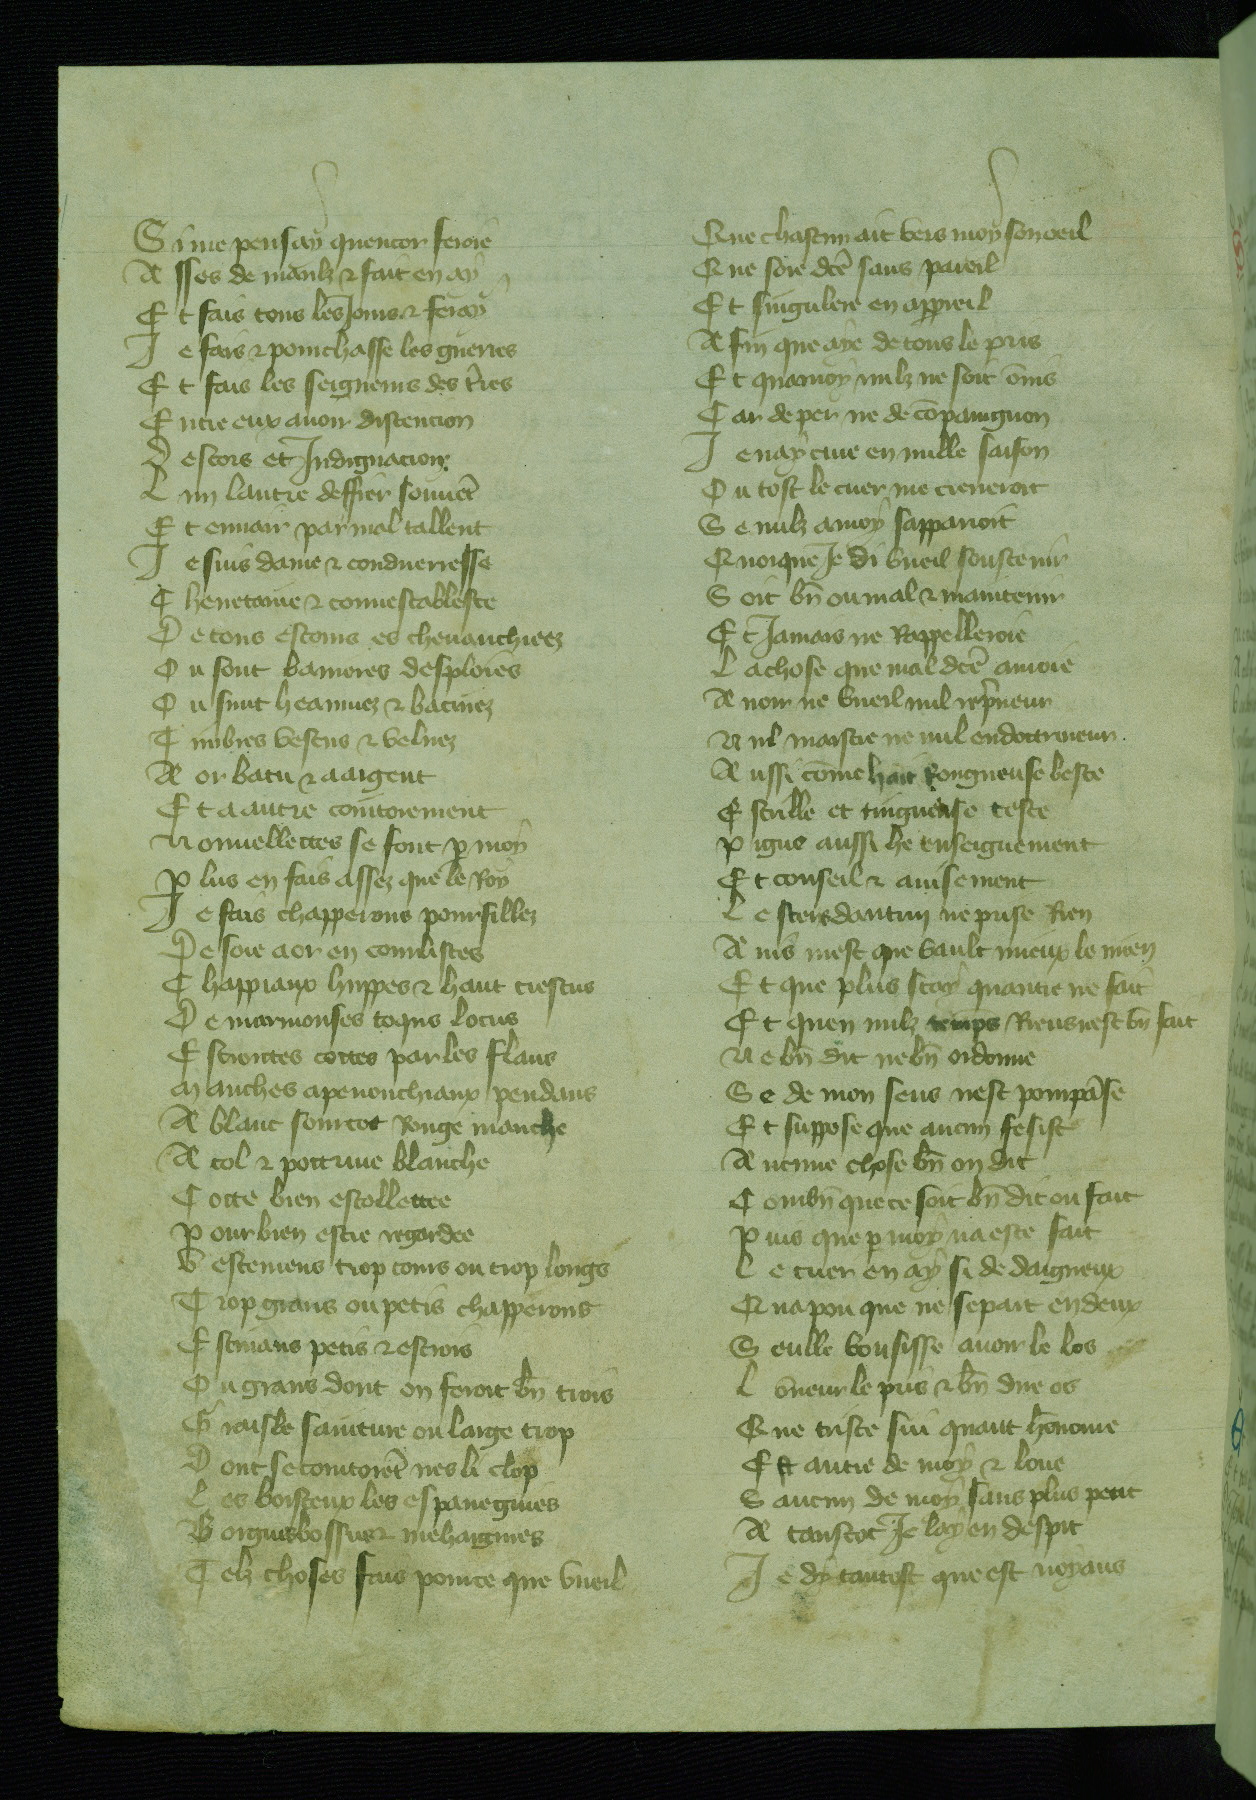 Si me pensay quencor feroie
Asses de maulz & fait en ay
Et fais tous les Jours & feray
Je fais & pourchasse les guerres
Et fais les seigneurs des t̄res
Entre eux auoir discencion
Descors et Indignacion
Lun lautre deffier souuēt
Et enuair par mal tallent
Je suis dame & conduerresse
Cheuetaine & connestablesce
De tous estours es cheuauchiees
Ou sont banieres desploies
Ou sunt heaumez & bacinez
Timbres vestus & veluez
A or batu & a argent
Et a autre cointoiement
Nouuellettes se font p moy
Plus en fais assez que le Roy
Je fais chapperons pourfillez
De soie a or en coulistes
Chappiaux huppes & haut crestus
De marmouses toqus locus
Estroittes cottes par les flans
Manches apenonchiaux pendans
A blanc sourcot Rouge manche
A col & pottrine blanche
Cotte bien escollettee
Pour bien estre regardee
Vestemens trop cours ou trop longs
Trop grans ou petis chapperons
Estriuaus petis & estrois
Ou grans dont on feroit bn̄ trois
Graisle sainture ou large trop
Dont se cointoiēt nes li clop
Les boisteux les espauegnies
Borgnes bossues & mehaignies
Telz choses fais pour ce que vueil
Que chascun ait vers moy son oeil
Que soie dc̄e sans pareil
Et singulere en appareil
Afin que aye de tous le pris
Et qua moy nulz ne soit c̄ris
Car de per ne de cōpaingnon
Je nay cure en nulle saison
Ou tost le cuer me creueroit
Se nulz a moy sapparoit
Quoique Je di vueil soustenir
Soit bn̄ ou mal & maintenir
Et Jamais ne Rappelleroie
La chose que mal dc̄e auroie
Auoir ne vueil nul rep̄neur
Nul maistre ne nul endottrineur
Aussi cōme hait Rongneuse beste
Estrille et tingneuse teste
Pigne aussi he enseignement
Et conseil & auisement
Le sens dautrui ne prise Rien
Auis mest que vault mieux le mien
Et que plus scay quautre ne fait
Et quen nulz temps Riens nest bn̄ fait
Ne bn̄ dit ne bn̄ ordonne
Se de mon sens nest pompāse
Et suppose que aucun fesist
Aucune chose bn̄ ou dit
Combn̄ que ce soit bn̄ dit ou fait
Puis que p moy na este fait
Le cuer en ay si dedaigneux
Qua pou que ne se part en deux
Seulle vousisse auoir le los
Lōneur le pris & bn̄ dire os
Que triste sui quant hōnoure
Est autre de moy & loue
Saucun de moy sans plus petit
A tanstot Je lay en despit
Je dy tantost que est noyans